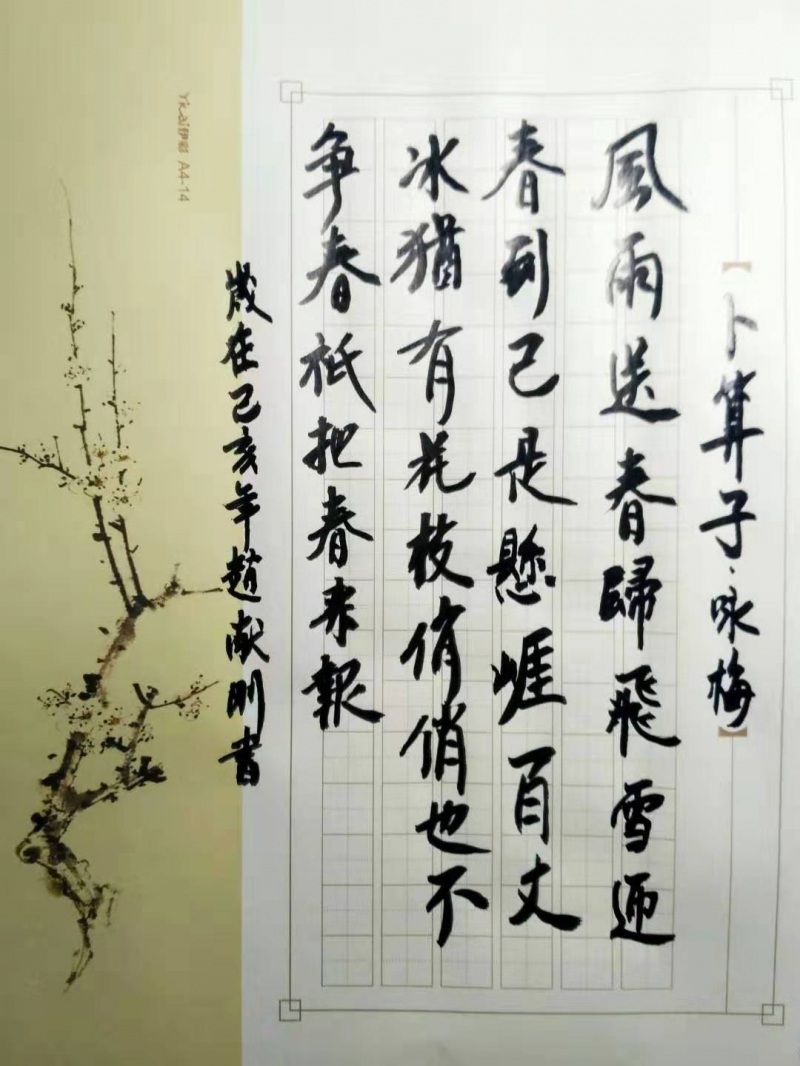 【卜算子·咏梅】
風雨送春歸飛雪迎
春到已是懸崖百丈
冰猶有花枝俏俏也不
争春祇把春来報
歲在己亥年趙献明書
Yicai伊彩 A4-14